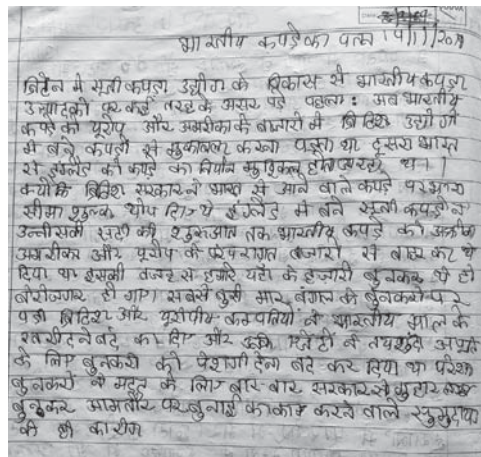 भारतीय कपडे का पतन
ब्रिटेन मे सूती कपड़ा उद्योग के विकास से भारतीय कपड़ा
उत्पादकों पर कई तरह के असर पड़े पहला : अब भारतीय
कपड़े को यूरोप और अमरीका के बाजारों में ब्रिटिश उद्योगों
में बने कपड़ों से मुकाबला करना पड़ता था दूसरा भारत
से इंग्लैंड को कपड़े का निर्यात मुश्किल होता था
क्योंकि ब्रिटिश सरकार ने भारत से आने वाले कपड़े पर भारी
सीमा शुल्क थोप दिए थे इंग्लैंड में बने सूती कपड़ों ने
उन्नीसवीं सदी की शुरुआत तक भारतीय कपड़े को
और यूरोप के परंपरागत बाजारों से बाहर कर
दिया था इसकी वजह से हमारे यहाँ के हजारों बुनकर
बेरोजगार हो गए सबसे बुरी मार बंगाल के बुनकरों पर
पड़ी ब्रिटिश और यूरोपीय कम्पनियों ने भारतीय माल के
खरीदने बंद कर दिए और उनके एजेंटों ने तयशुदा
के लिए बुनकरों को पेशगी देना बंद कर दिया था परेशान
बुनकरों ने मदद के लिए बार-बार सरकार से गुहार
बुनकर आमतौर पर बुनाई का काम करने वाले समुदायों
के ही कारीगर